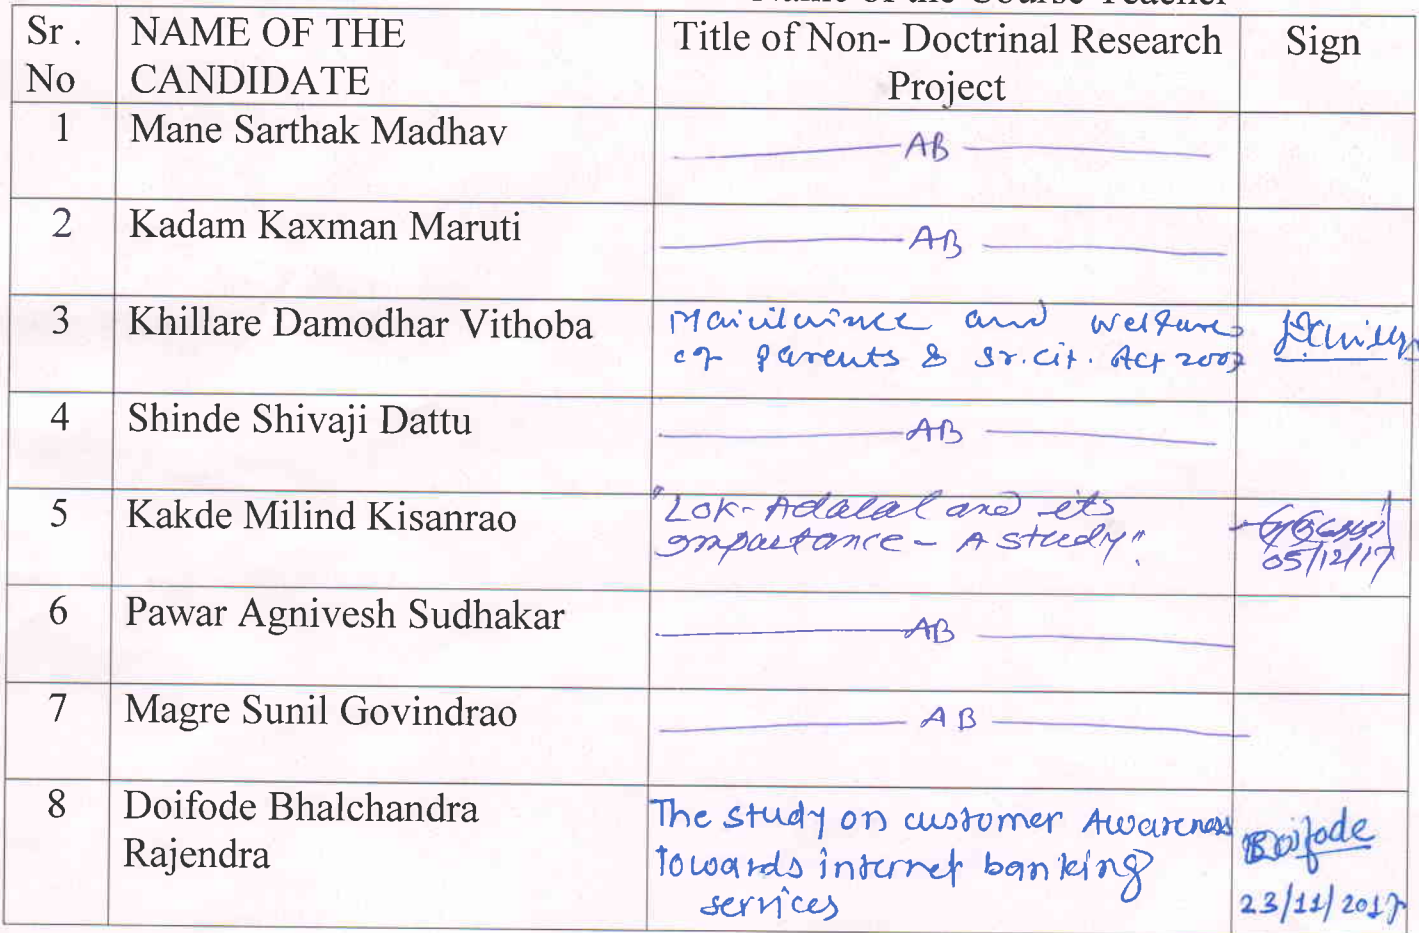 Name of the Course Teacher
Sr . No NAME OF THE CANDIDATE Title of Non- Doctrinal Research Project Sign
1 Mane Sarthak Madhav AB
2 Kadam Kaxman Maruti AB
3 Khillare Damodhar Vithoba Maintainance and welfare
of parents & sr.cit. Act 2007
4 Shinde Shivaji Dattu AB
5 Kakde Milind Kisanrao "Lok-Adalat and its
importance - A study".
05/12/17
6 Pawar Agnivesh Sudhakar AB
7 Magre Sunil Govindrao AB
8 Doifode Bhalchandra Rajendra The study on customer Awareness
towards internet banking
services
Doifode
23/11/2017